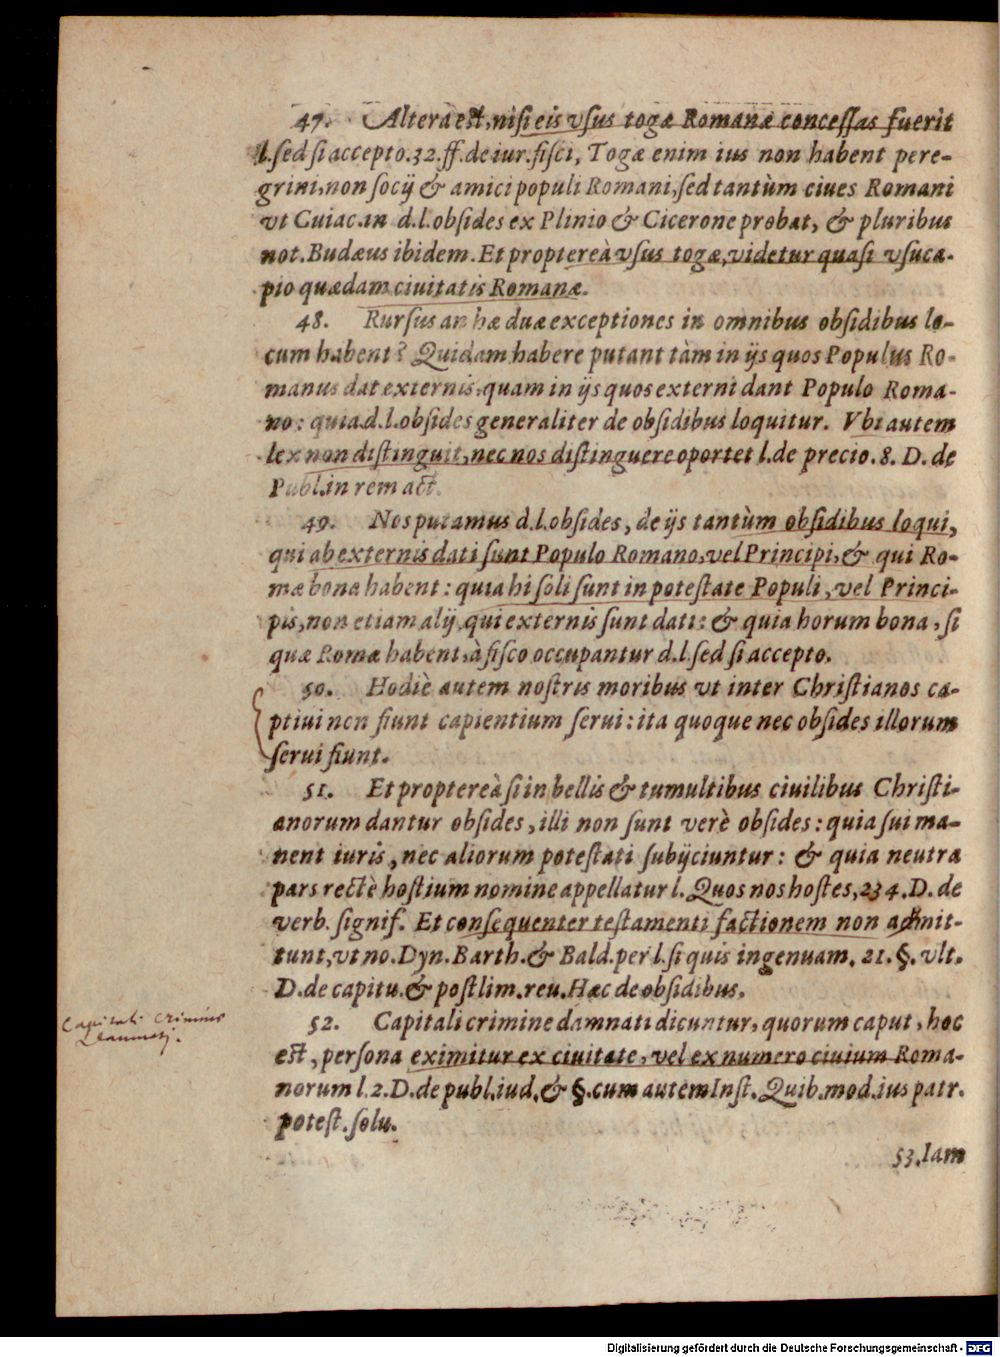 47. Altera est, nisi eis vsus togæ Romanæ concessas fuerit
l. sed si accepto. 32. ff. de iur. fisci, Togæ enim ius non habent pere-
grini, non socij & amici populi Romani, sed tantùm ciues Romani
vt Cuiac. in d. l. obsides ex Plinio & Cicerone probat, & pluribus
not. Budæus ibidem. Et proptereà vsus togæ, videtur quasi vsuca-
pio quædam ciuitatis Romanæ.
48. Rursus an hæ duæ exceptiones in omnibus obsidibus lo-
cum habent? Quidam habere putant tàm in ijs quos Populus Ro-
manus dat externis, quam in ijs quos externi dant Populo Roma-
no: quia d. l. obsides generaliter de obsidibus loquitur. Vbi autem
lex non distinguit, nec nos distinguere oportet l. de precio. 8. D. de
Publ. in rem act.
49. Nos putamus d. l. obsides, de ijs tantùm obsidibus loqui,
qui ab externis dati sunt Populo Romano, vel Principi, & qui Ro-
mæ bona habent: quia hi soli sunt in potestate Populi, vel Princi-
pis, non etiam alij, qui externis sunt dati: & quia horum bona, si
quæ Romæ habent, à fisco occupantur d. l. sed si accepto.
50. Hodiè autem nostris moribus vt inter Christianos ca-
ptiui non fiunt capientium serui: ita quoque nec obsides illorum
serui fiunt.
51. Et proptereà si in bellis & tumultibus ciuilibus Christi-
anorum dantur obsides, illi non sunt verè obsides: quia sui ma-
nent iuris, nec aliorum potestati subijciuntur: & quia neutra
pars rectè hostium nomine appellatur l. Quos nos hostes, 234. D. de
verb. signif. Et consequenter testamenti factionem non admit-
tunt, vt no. Dyn. Barth. & Bald. per l. si quis ingenuam. 21. §. vlt.
D. de capitu. & postlim. reu. Hæc de obsidibus.
Capitali crimine
damnatj.
52. Capitali crimine damnati dicuntur, quorum caput, hoc
est, persona eximitur ex ciuitate, vel ex numero ciuium Roma-
norum l. 2. D. de publ. iud. & §. cum autem Inst. Quib. mod. ius patr.
potest. solu.
53. Iam
Digitalisierung gefördert durch die Deutsche Forschungsgemeinschaft - DFG